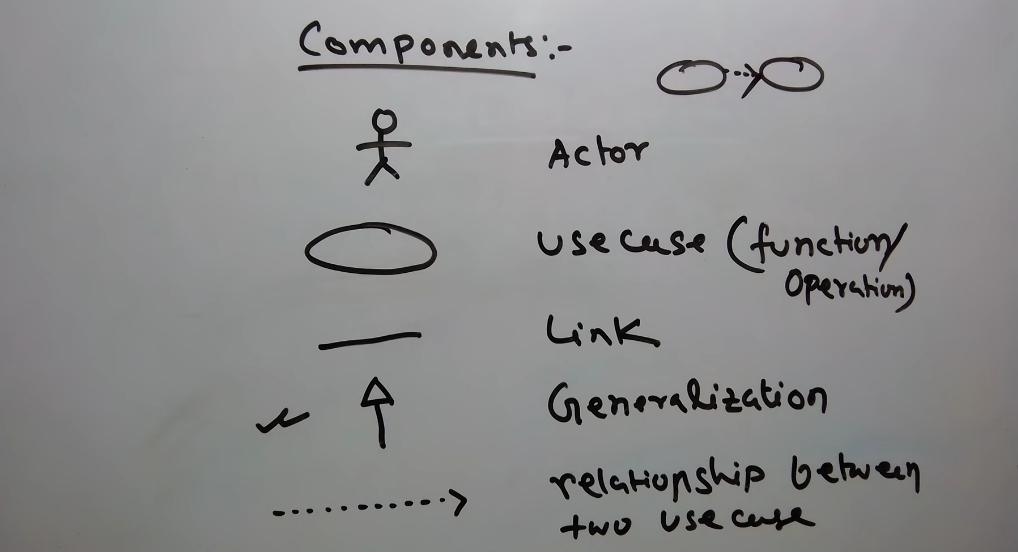 Components:-
Actor
use case (function/
operation)
Link
Generalization
relationship between
two use case